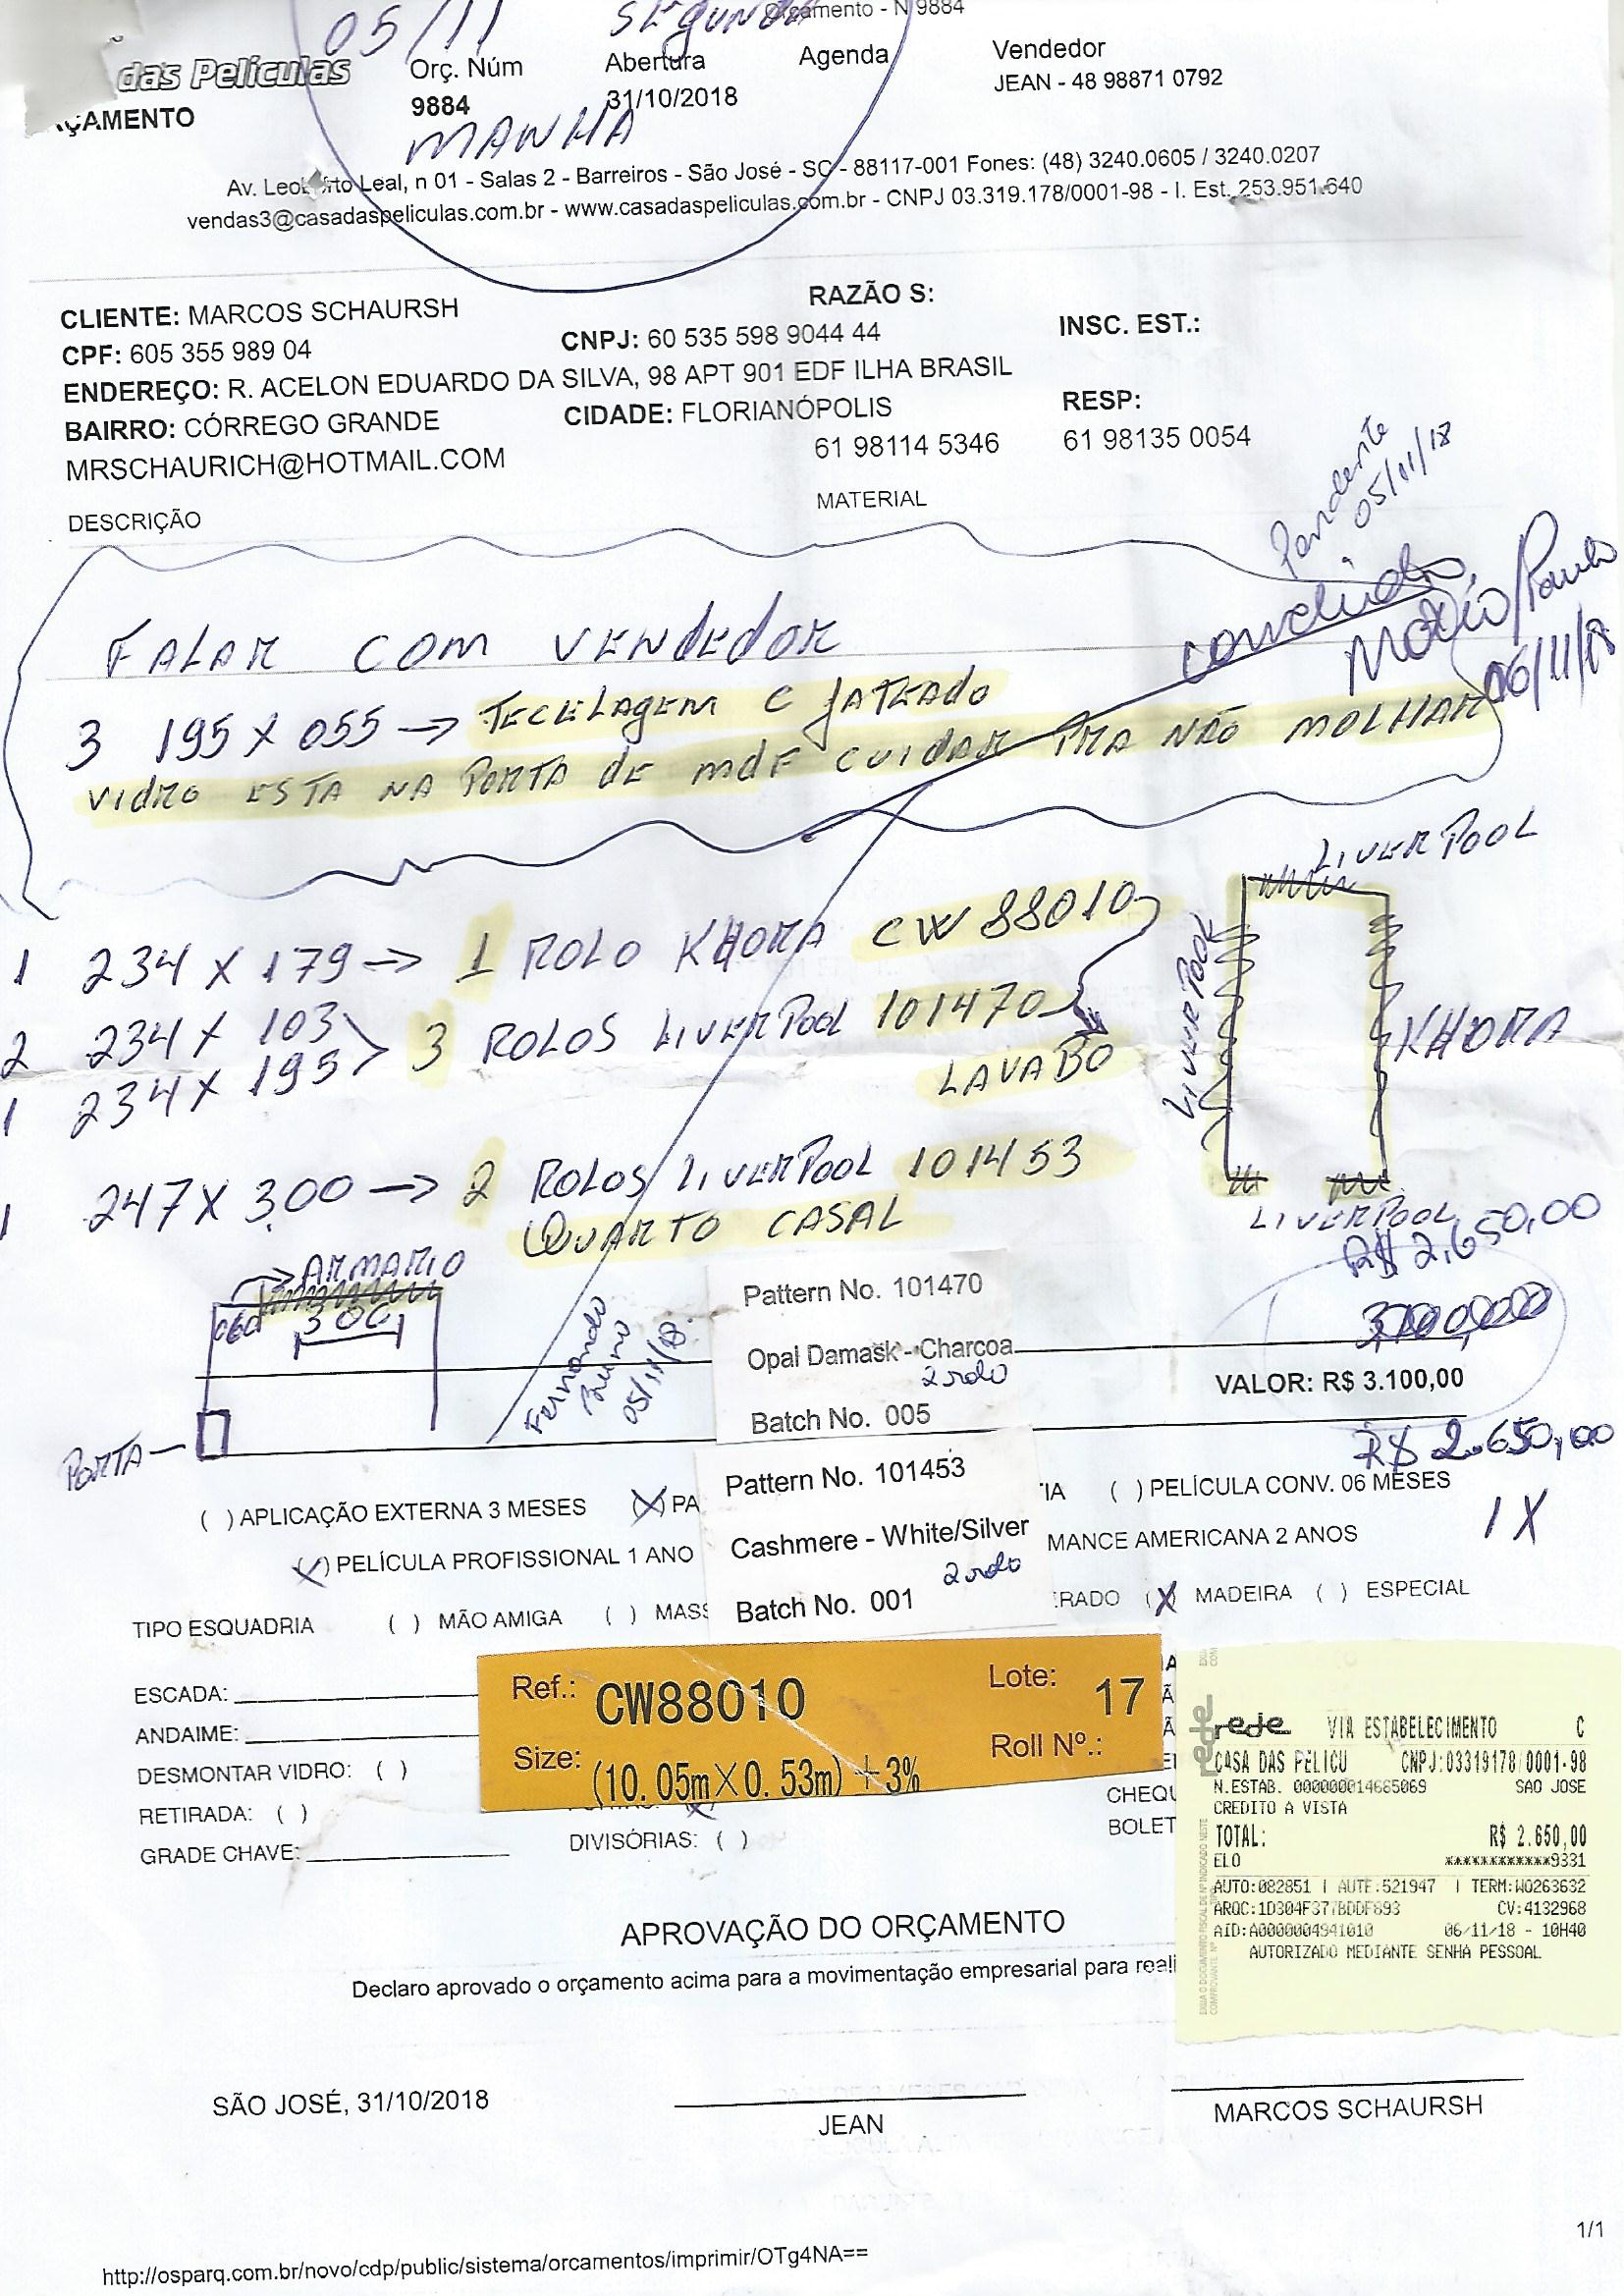 05/11 SEGUNDA
Orçamento - N 9884
das Películas
ÇAMENTO
Orç. Núm
9884
Abertura
31/10/2018
Agenda
Vendedor
JEAN - 48 98871 0792
MANHA
Av. Leoberto Leal, n 01 - Salas 2 - Barreiros - São José - SC - 88117-001 Fones: (48) 3240.0605 / 3240.0207
vendas3@casadaspeliculas.com.br - www.casadaspeliculas.com.br - CNPJ 03.319.178/0001-98 - I. Est. 253.951.640
RAZÃO S:
CLIENTE: MARCOS SCHAURSH
CNPJ: 60 535 598 9044 44
INSC. EST.:
CPF: 605 355 989 04
ENDEREÇO: R. ACELON EDUARDO DA SILVA, 98 APT 901 EDF ILHA BRASIL
BAIRRO: CÓRREGO GRANDE
CIDADE: FLORIANÓPOLIS
RESP:
MRSCHAURICH@HOTMAIL.COM
61 98114 5346
61 98135 0054
DESCRIÇÃO
MATERIAL
Pendente
05/11/18
concluído
06/11/18
FALAR COM VENDEDOR
3 195 X 055 → TECELAGEM E JATEADO
VIDRO ESTA NA PORTA DE MDF CUIDAR PRA NÃO MOLHAR
1 234 X 179 → 1 ROLO KHOMA CW 88010
2 234 X 103
3 ROLOS LIVERPOOL 101470
1 234 X 195
LAVABO
LIVERPOOL
LIVERPOOL
KHOMA
LIVERPOOL
1 247 X 3.00 → 2 ROLOS LIVERPOOL 101453
QUARTO CASAL
ARMARIO
060
300
PORTA
Fernando
Bruno
05/11/18
R$ 2.650,00
VALOR: R$ 3.100,00
R$ 2.650,00
1 X
Pattern No. 101470
Opal Damask - Charcoa
2 rolo
Batch No. 005
Pattern No. 101453
Cashmere - White/Silver
2 rolo
Batch No. 001
( ) APLICAÇÃO EXTERNA 3 MESES (X) PA
IA ( ) PELÍCULA CONV. 06 MESES
(X) PELÍCULA PROFISSIONAL 1 ANO
MANCE AMERICANA 2 ANOS
TIPO ESQUADRIA ( ) MÃO AMIGA ( ) MASS
ERADO (X) MADEIRA ( ) ESPECIAL
ESCADA:
ANDAIME:
DESMONTAR VIDRO: ( )
RETIRADA: ( )
GRADE CHAVE:
DIVISÓRIAS: ( )
CHEQU
BOLET
Ref.: CW88010
Lote: 17
Size: (10.05m X 0.53m) + 3%
Roll Nº.:
rede VIA ESTABELECIMENTO C
CASA DAS PELICU CNPJ:03319178/0001-98
N.ESTAB. 000000014665069 SAO JOSE
CREDITO A VISTA
TOTAL: R$ 2.650,00
ELO ************9331
AUTO:082851 | AUTE:521947 | TERM:WO263632
ARQC:1D304F377BDDF693 CV:4132968
AID:A0000004941010 06/11/18 - 10H40
AUTORIZADO MEDIANTE SENHA PESSOAL
APROVAÇÃO DO ORÇAMENTO
Declaro aprovado o orçamento acima para a movimentação empresarial para reali
SÃO JOSÉ, 31/10/2018
JEAN
MARCOS SCHAURSH
1/1
http://osparq.com.br/novo/cdp/public/sistema/orcamentos/imprimir/OTg4NA==